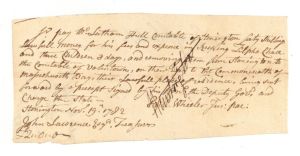 Sr pay Mr Latham Hull Constable of Stonington Sixty Shillings
Lawfull money for his fees and expence in
and three Children 2 days, and removing them from Stonington to
the Constable of Voluntown, on their way to the Commonwealth of
Massachusetts Bay their Lawfull place of residence, being sent
forward by a precept signed by the Deputy Govr, and
Charge the State
Stonington Novr 19 1782
Wheeler Jus: Pac:
John Lawrence Esqr Treasurer